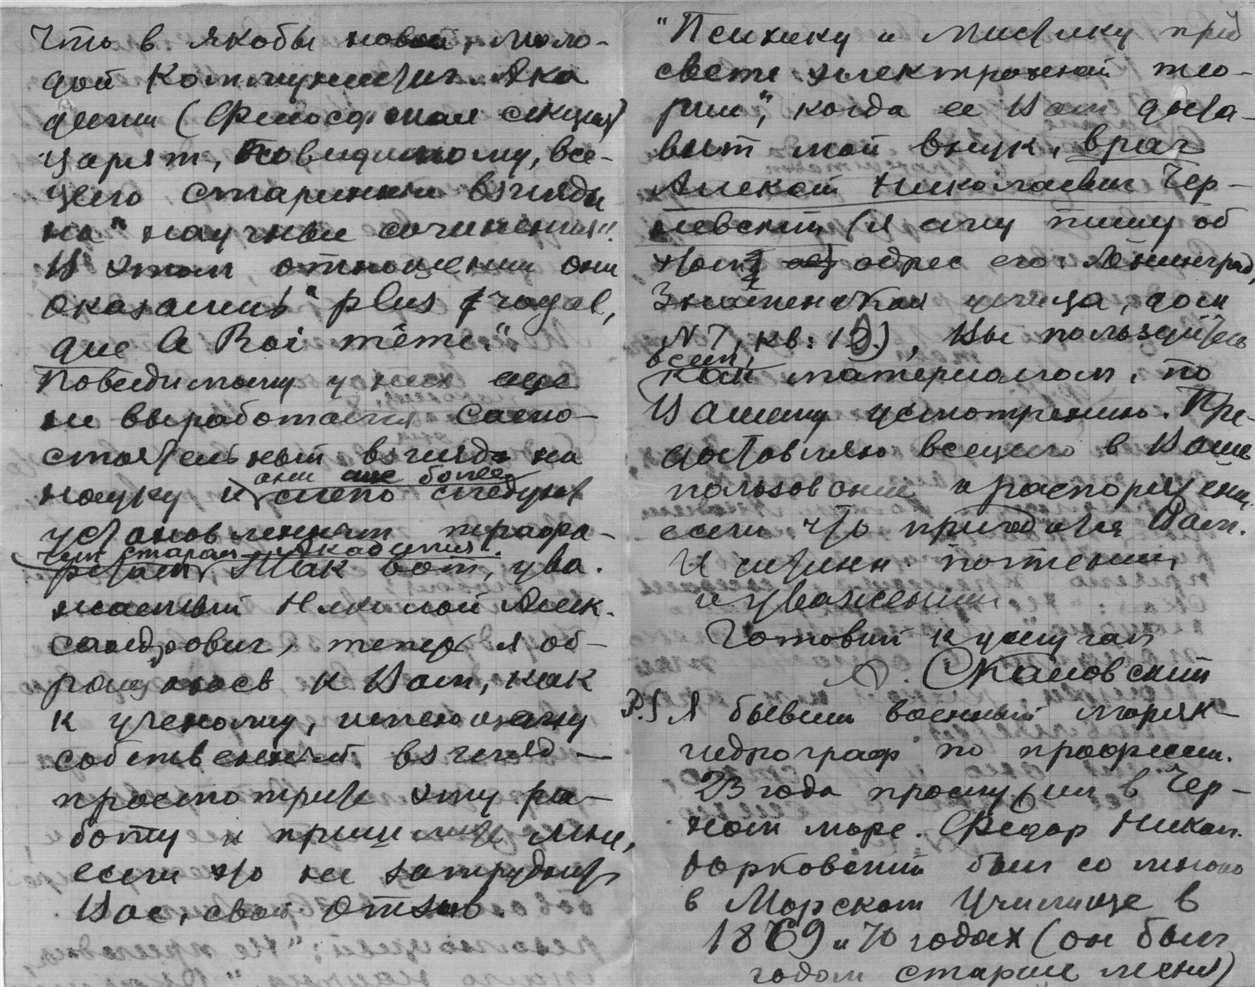 что в якобы новой, моло-
дой Коммунистич. Ака
демии (Философская секция)
царят, повидимому, все-
цело старинные взгляды
на "научные сочинения".
В этом отношении они
оказались "plus royal,
que le Roi même."
Повидимому у них еще
не выработался само-
стоятельный взгляд на
науку и они еще более
слепо следуют
установленным трафа-
ретам, чем старая Академия.
Так вот, ува-
жаемый Николай Алек-
сандрович, теперь я об-
ращаюсь к Вам, как
к ученому, имеющему
собственный взгляд —
просмотрите эту ра-
боту и пришлите мне,
если это не затруднит
Вас, свой отзыв.
"Психику и мистику при
свете электронной тео-
рии", когда ее Вам доста-
вит мой внук, врач
Алексей Николаевич Чер-
невский (я ему пишу об
этом, адрес его: Ленинград,
Знаменская улица, дом
N 7, кв:), Вы пользуйтесь
всем,
как материалом, по
Вашему усмотрению. Пре-
доставляю всецело в Ваше
пользование и распоряжение,
если что пригодится Вам.
Истинным почтением
и уважением
Готовый к услугам
Скаловский
P.S Я бывший военный моряк-
гидрограф по профессии.
23 года прослужил в Чер-
ном море. Федор Никол.
Юрковский был со мною
в Морском Училище в
1869 и 70 годах (он был
годом старше меня)